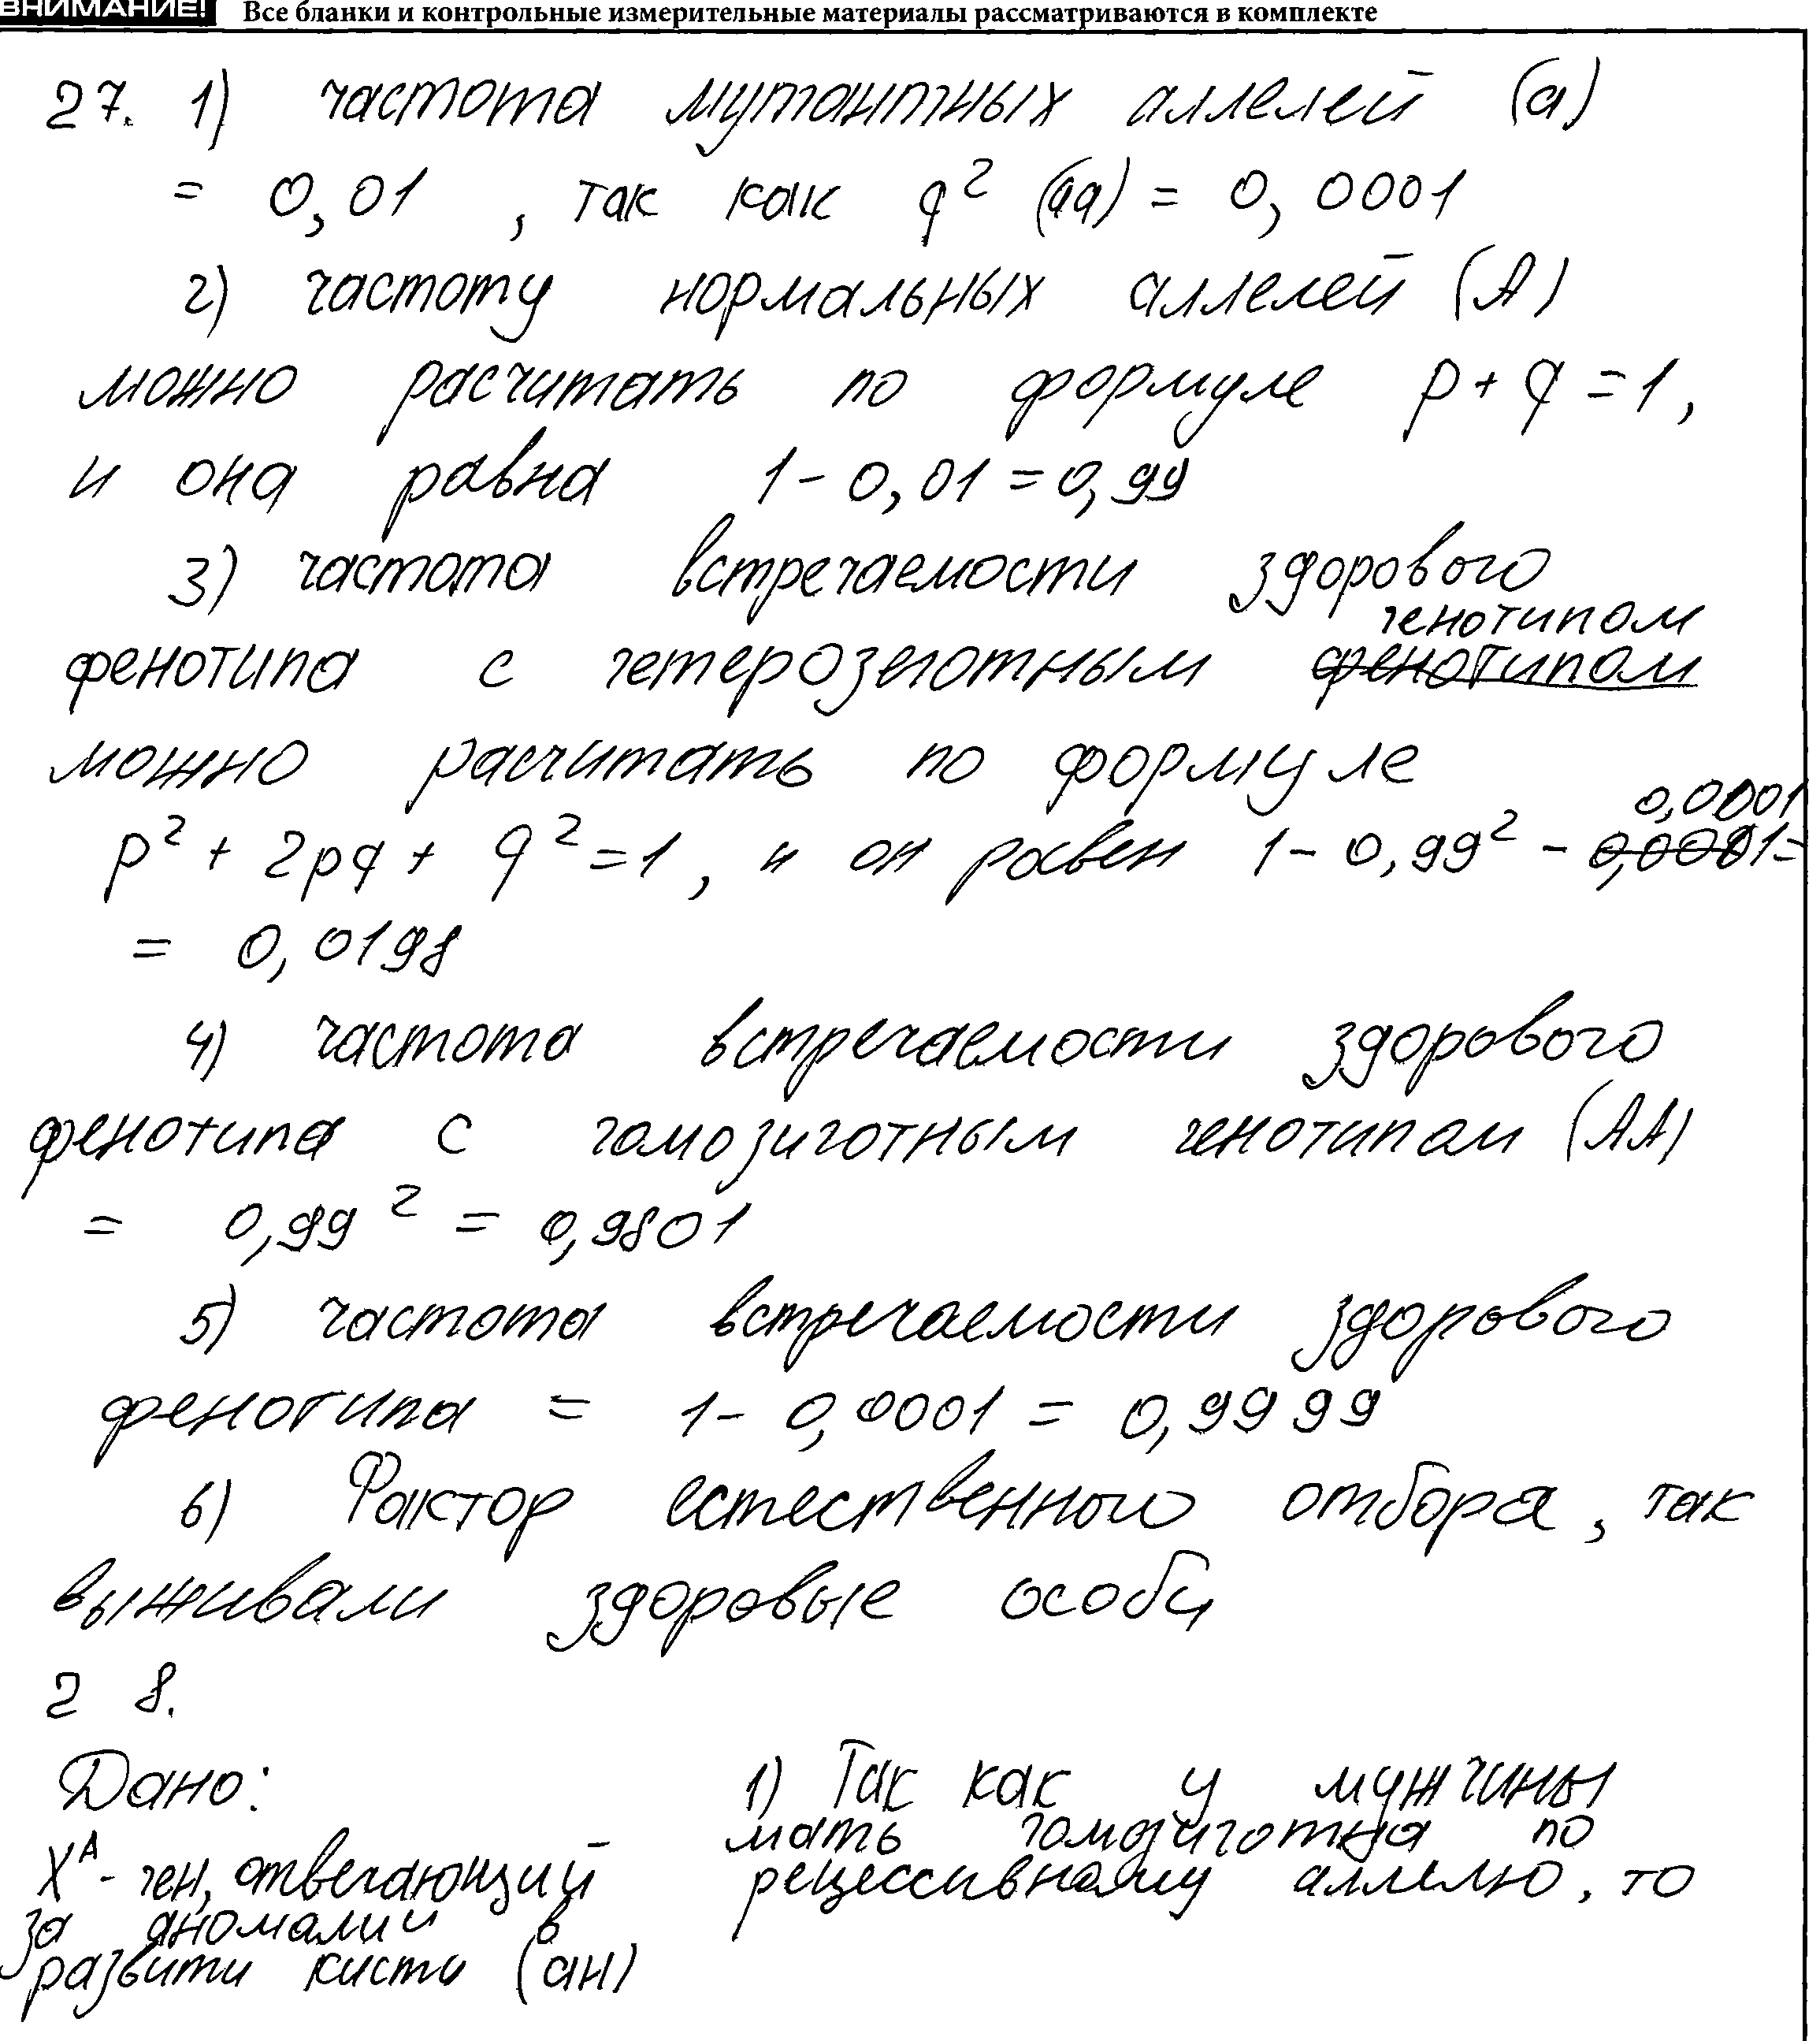 ВНИМАНИЕ! Все бланки и контрольные измерительные материалы рассматриваются в комплекте
27. 1) частота мутантных аллелей (а)
= 0,01 , так как q² (аа) = 0,0001
2) частоту нормальных аллелей (А)
можно расчитать по формуле p + q = 1,
и она равна 1 - 0,01 = 0,99
3) частота встречаемости здорового
генотипом
фенотипа с гетерозиготным фенотипом
можно расчитать по формуле
0,0001
p² + 2pq + q² = 1, и он равен 1 - 0,99² - 0,0001 =
= 0,0198
4) частота встречаемости здорового
фенотипа с гомозиготным генотипом (АА)
= 0,99² = 0,9801
5) частота встречаемости здорового
фенотипа = 1 - 0,0001 = 0,9999
6) Фактор естественного отбора, так
выживали здоровые особи
28.
Дано:
Xᴬ - ген, отвечающий
за аномалии в
развити кисти (ан)
1) Так как у мужчины
мать гомозиготна по
рецессивному аллелю, то